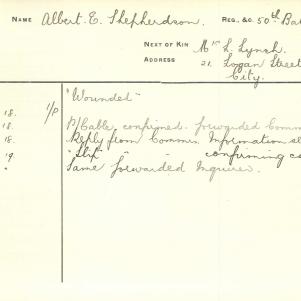 NAME Albert. E. Shepherdson. REG. &C. 50th Bat
NEXT OF KIN Mrs L. Lynch.
ADDRESS 21. Logan Street
City.
"Wounded"
18. I/P
18. P/Cable confirmed. forwarded Comm
18. Reply from Commn. Information sl
19 "Slip" " - confirming ca
" Same forwarded Inquirer.